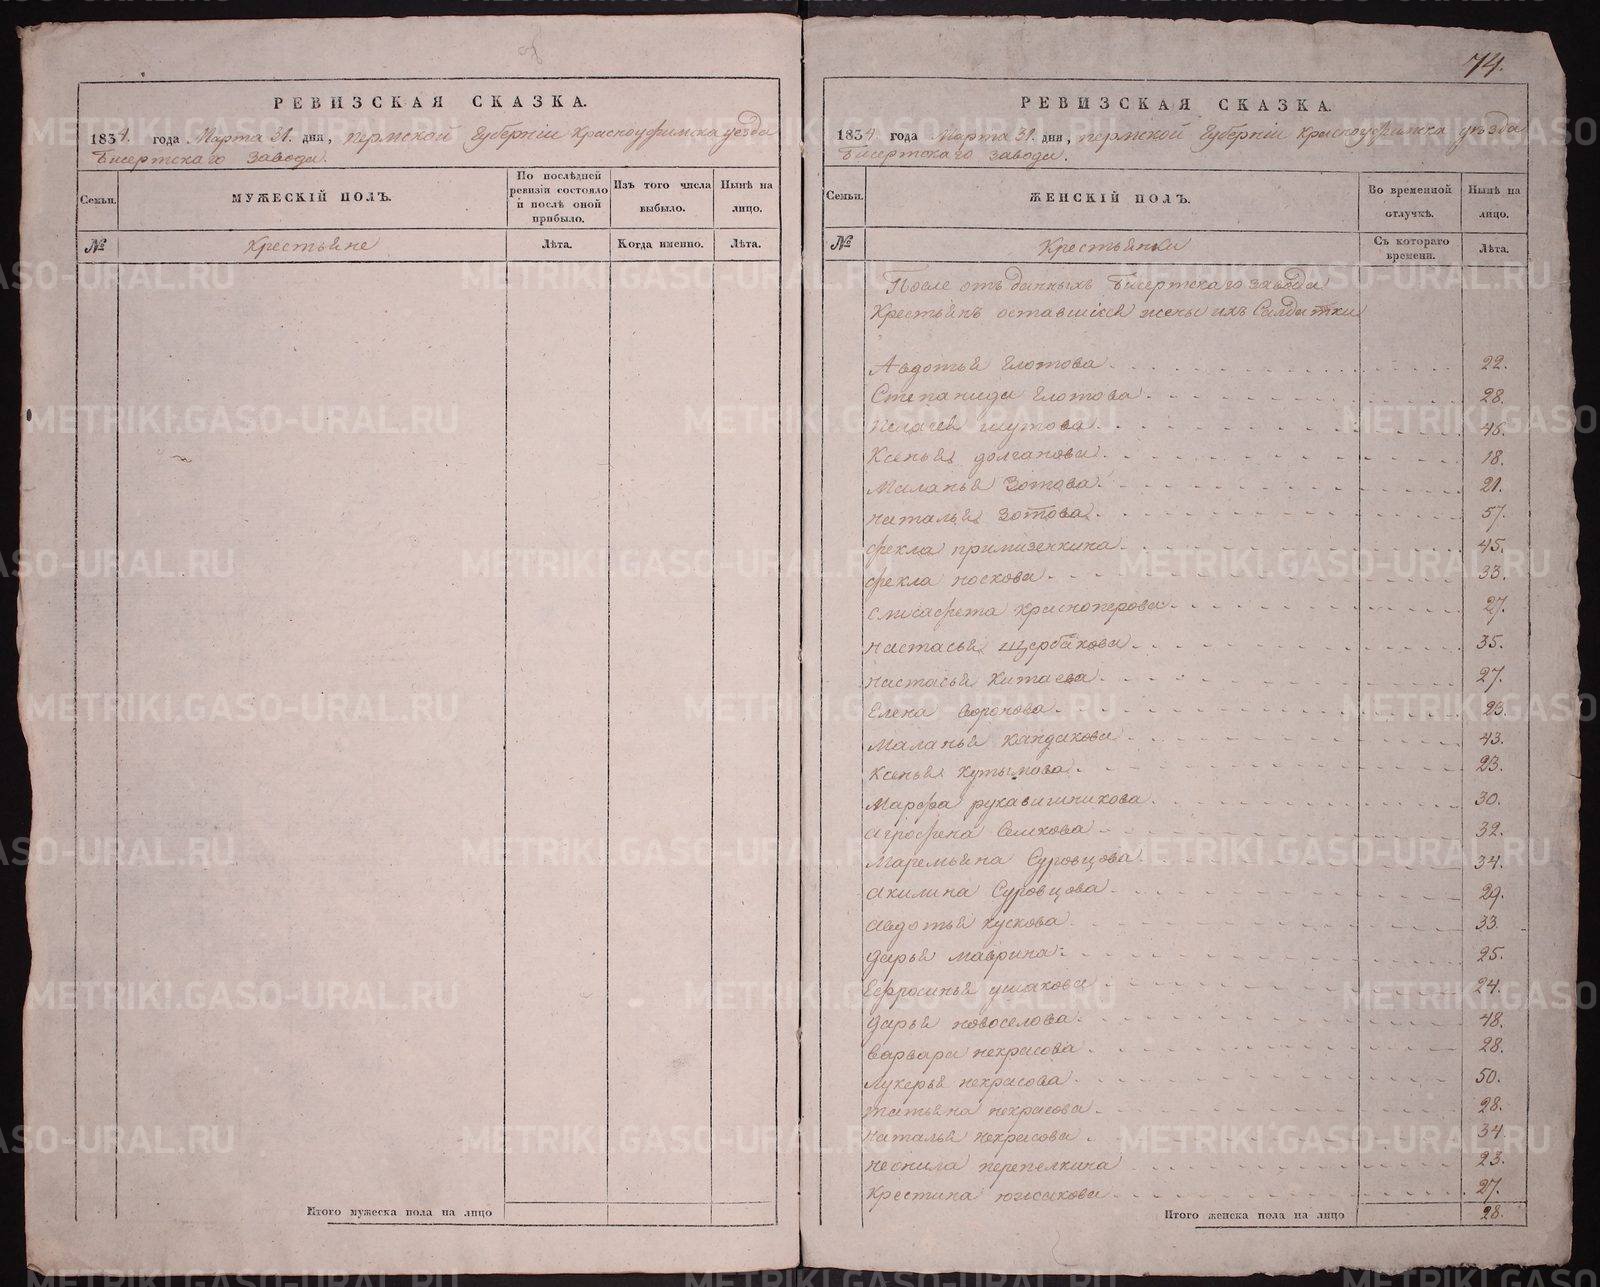 РЕВИЗСКАЯ СКАЗКА.
1834. года Марта 31. дня, пермской Губерніи Красноуфимска уезда
Бисертскаго завода.
Семьи.
МУЖЕСКІЙ ПОЛЪ.
По послѣдней ревизіи состояло и послѣ оной прибыло.
Изъ того числа выбыло.
Нынѣ на лицо.
№
Крестьяне
Лѣта.
Когда именно.
Лѣта.
Итого мужеска пола на лицо
74.
РЕВИЗСКАЯ СКАЗКА.
1834. года Марта 31. дня, пермской Губерніи Красноуфимска уѣзда
Бисертскаго завода.
Семьи.
ЖЕНСКІЙ ПОЛЪ.
Во временной отлучкѣ.
Нынѣ на лицо.
№
Крестьянки
Съ котораго времени.
Лѣта.
После отъ данныхъ Бисертскаго завода
Крестьянъ оставшіяся жены ихъ Салдатки
Авдотья Глотова 22.
Степанида Глотова 28.
пелагея шутова 46.
Ксенья долганова 18.
Маланья Зотова 21.
наталья Зотова 57.
фекла 45.
фекла носкова 33.
елисафета красноперова 27.
настасья щербакова 35.
настасья китаева 27.
Елена Воронова 23.
Маланья кандакова 43.
Ксенья кутымова 23.
Марфа рукавишникова 30.
агрофена Семкова 32.
Маремьяна Суровцова 34.
акилина Суровцова 29.
авдотья кускова 33.
дарья маврина 25.
Ефросинья ушакова 24.
дарья новоселова 48.
варвара некрасова 28.
лукерья некрасова 50.
татьяна некрасова 28.
наталья некрасова 34.
неонила перепелкина 23.
крестина южакова 27.
Итого женска пола на лицо 28.
METRIKI.GASO-URAL.RU